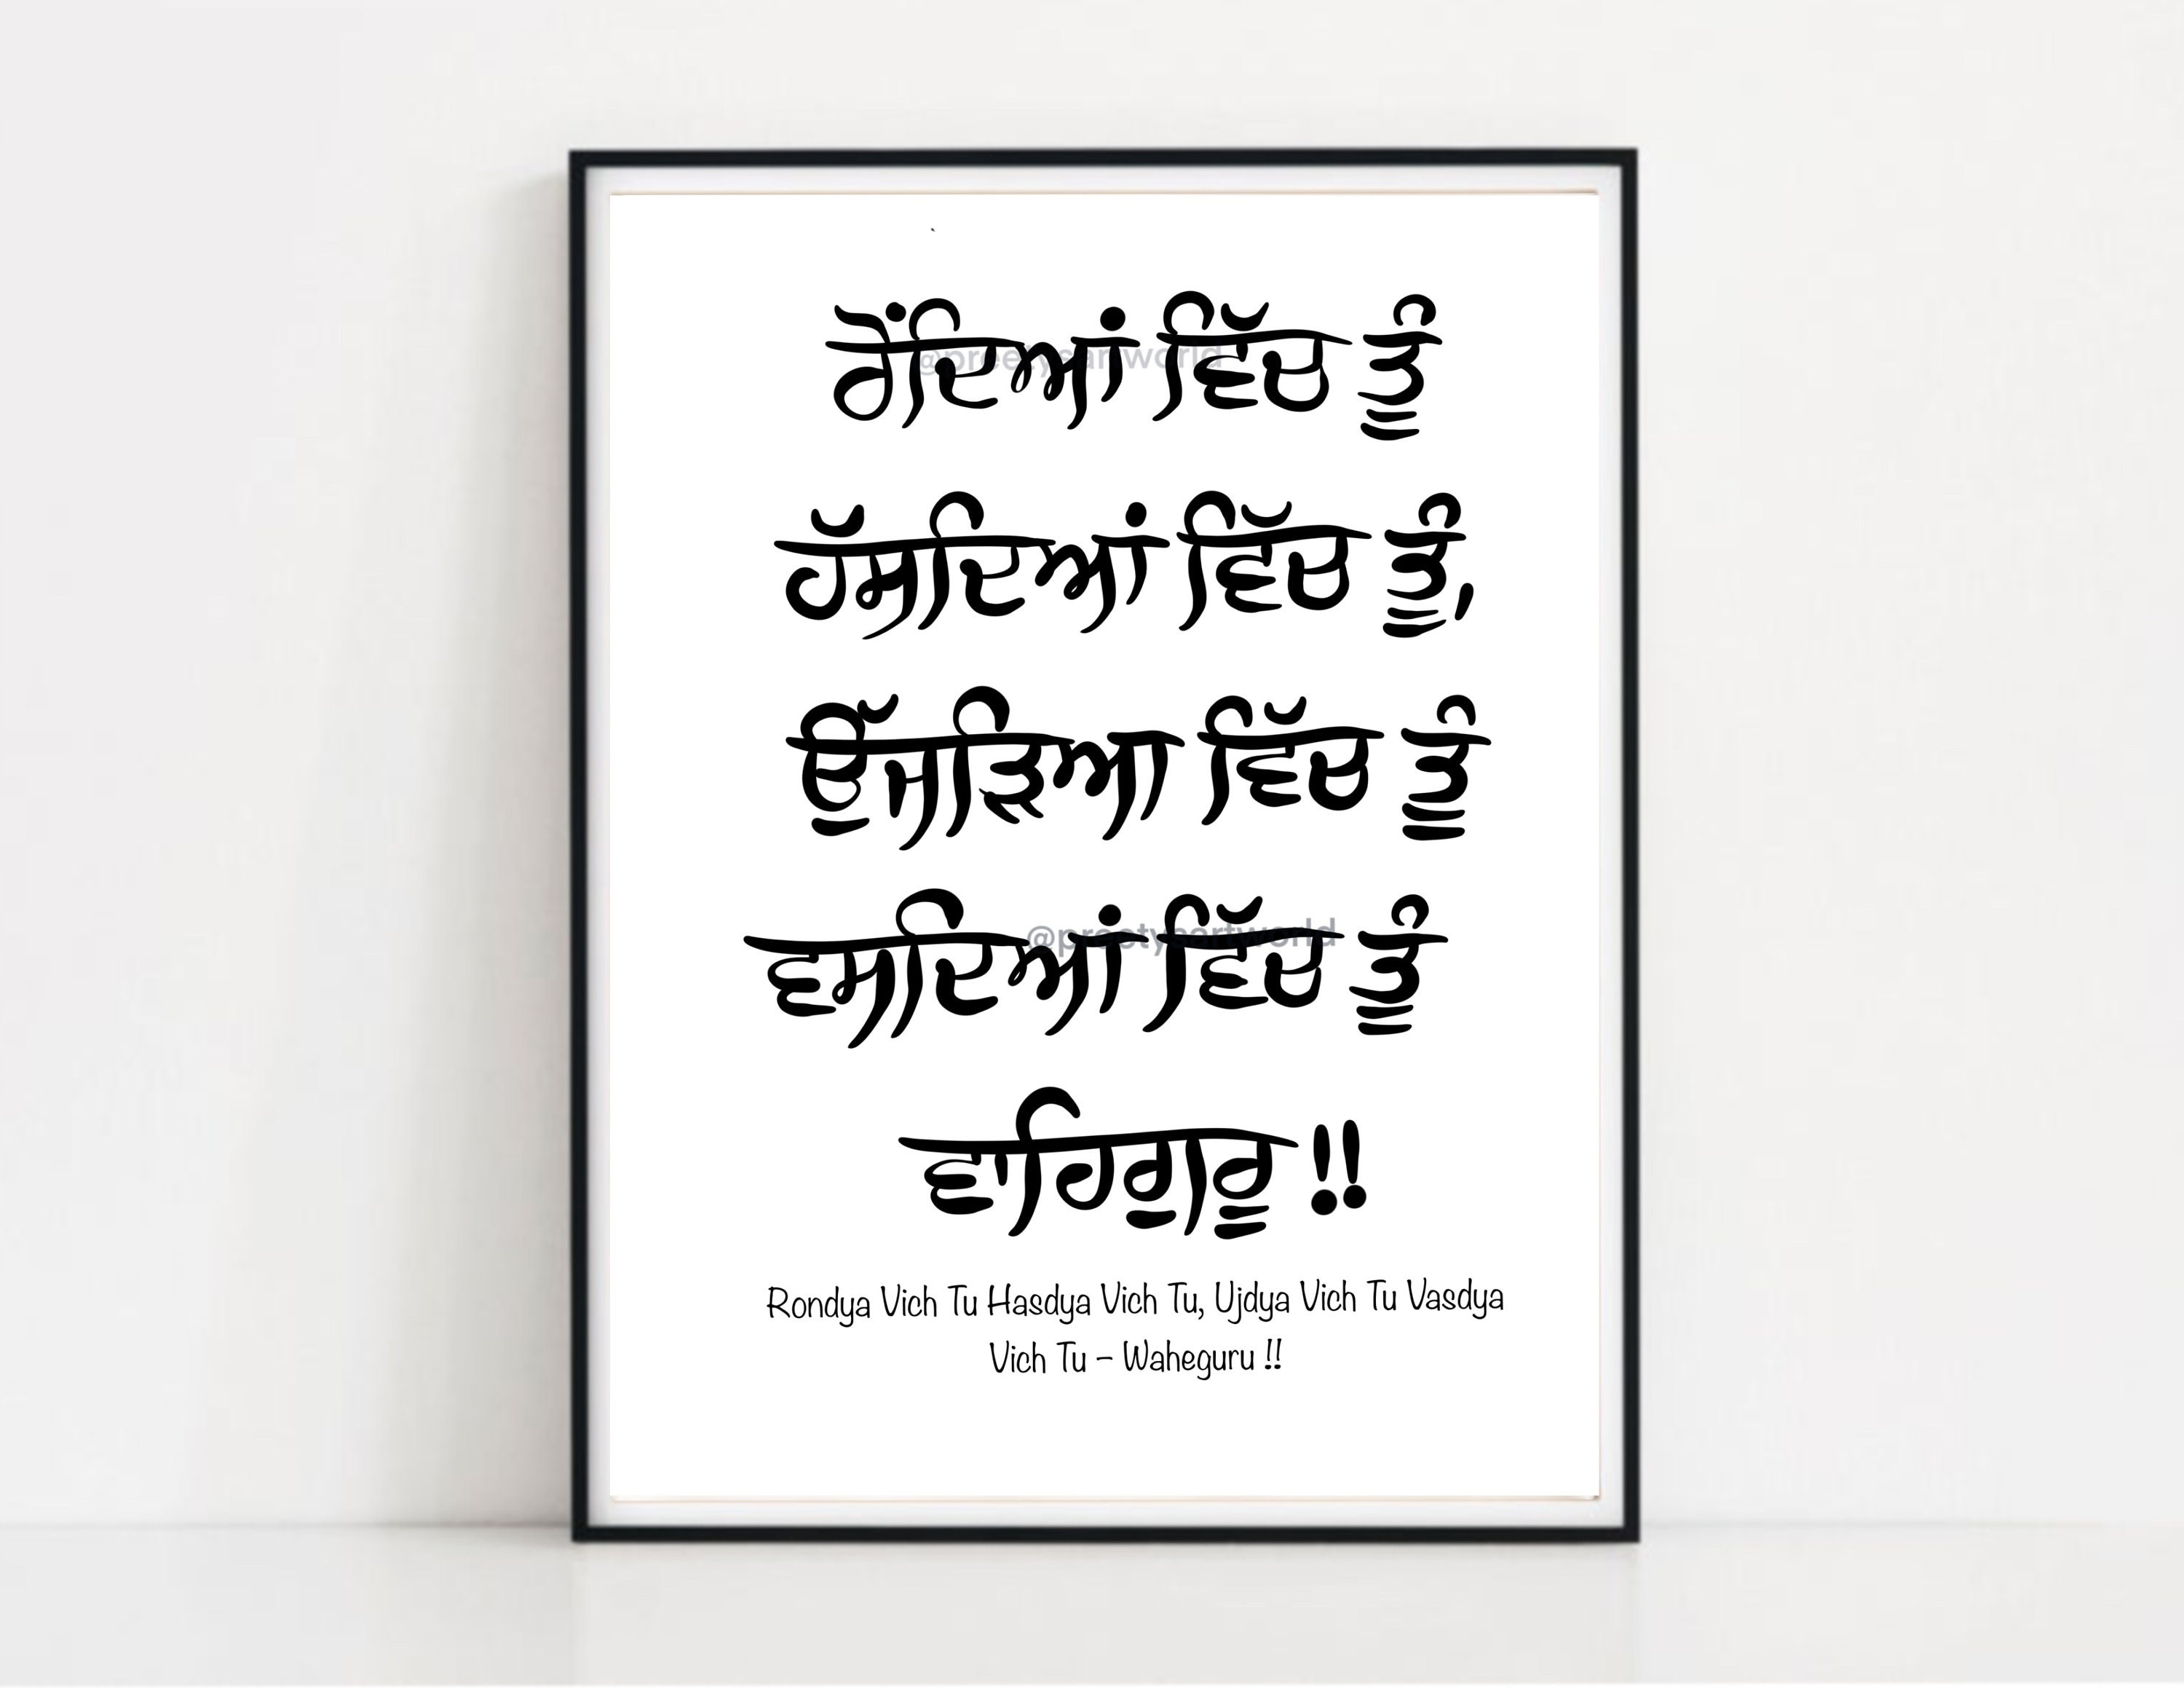 ਰੋਂਦਿਆਂ ਵਿੱਚ ਤੂੰ
@preetysartworld
ਹੱਸਦਿਆਂ ਵਿੱਚ ਤੂੰ,
ਉੱਜੜਿਆ ਵਿੱਚ ਤੂੰ
ਵਸਦਿਆਂ ਵਿੱਚ ਤੂੰ
@preetysartworld
ਵਾਹਿਗੁਰੂ !!
Rondya Vich Tu Hasdya Vich Tu, Ujdya Vich Tu Vasdya
Vich Tu – Waheguru !!